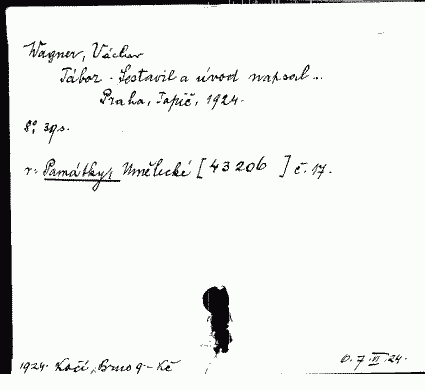 Wagner, Václav
Tábor. Sestavil a úvod napsal ...
Praha, Topič, 1924.
8°, 39 s.
r= Památky, Umělecké [43206 ] č. 17.
1924. Kočí, Brno 9- Kč
0. 7.VI.24.